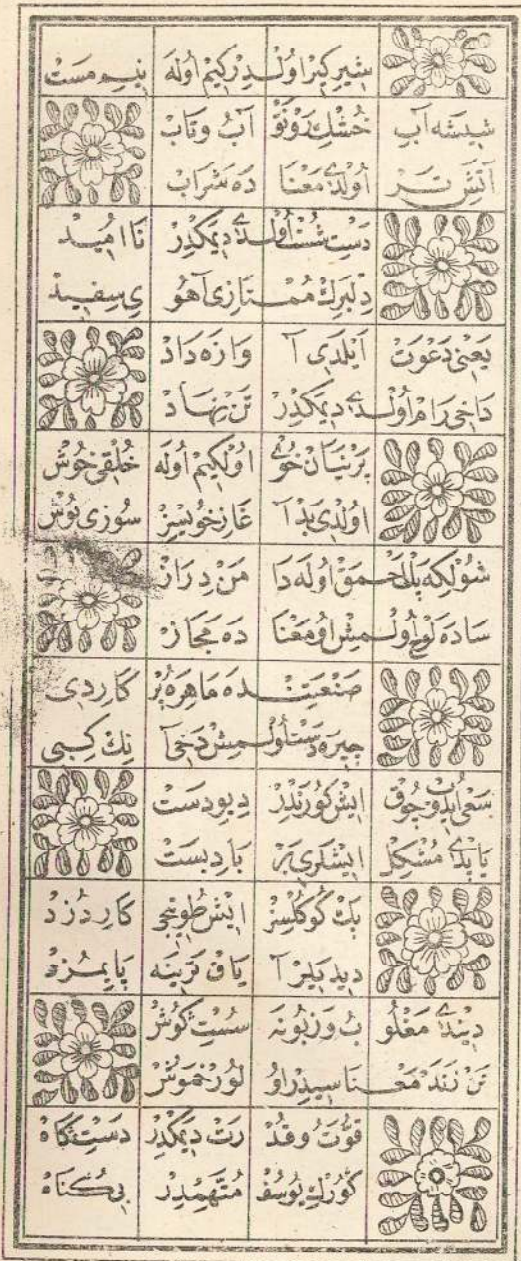 شیرکیر اولدر کیم اوله نیم مست
شیشه آب خشك رونق آب و تاب
آتش تر اولدی معنا ده شراب
دست شست اولدی دیمکدر نا امید
دلبرك ممتازی آهو ی سفید
یعنی دعوت ایلدی آ وازه داد
داخی رام اولدی دیمکدر تن نهاد
پرنیان خوی اول کیم اوله خلقی خوش
اولدی بد آ غاز خویسز سوزی نوش
شول که بل احمق اوله دا من دراز
ساده لوح اولمش او معنا ده مجاز
صنعتنده ماهره پر کاردی
چیره دست اولمش دخی آ نك کبی
سعی ایدوب چوق ایش کورندر دیودست
یابدی مشکل ایشلری بر بادبست
پك کوکلسز ایش طویجی کاردزد
دیدیلر آ یاق ترینه پایمزد
دیندی مغلو ب و زبونه سست کوش
تن زند معنا سیدر او لور خموش
قوت و قد رت دیمکدر دستکاه
کورك یوسف متهمدر بی کناه